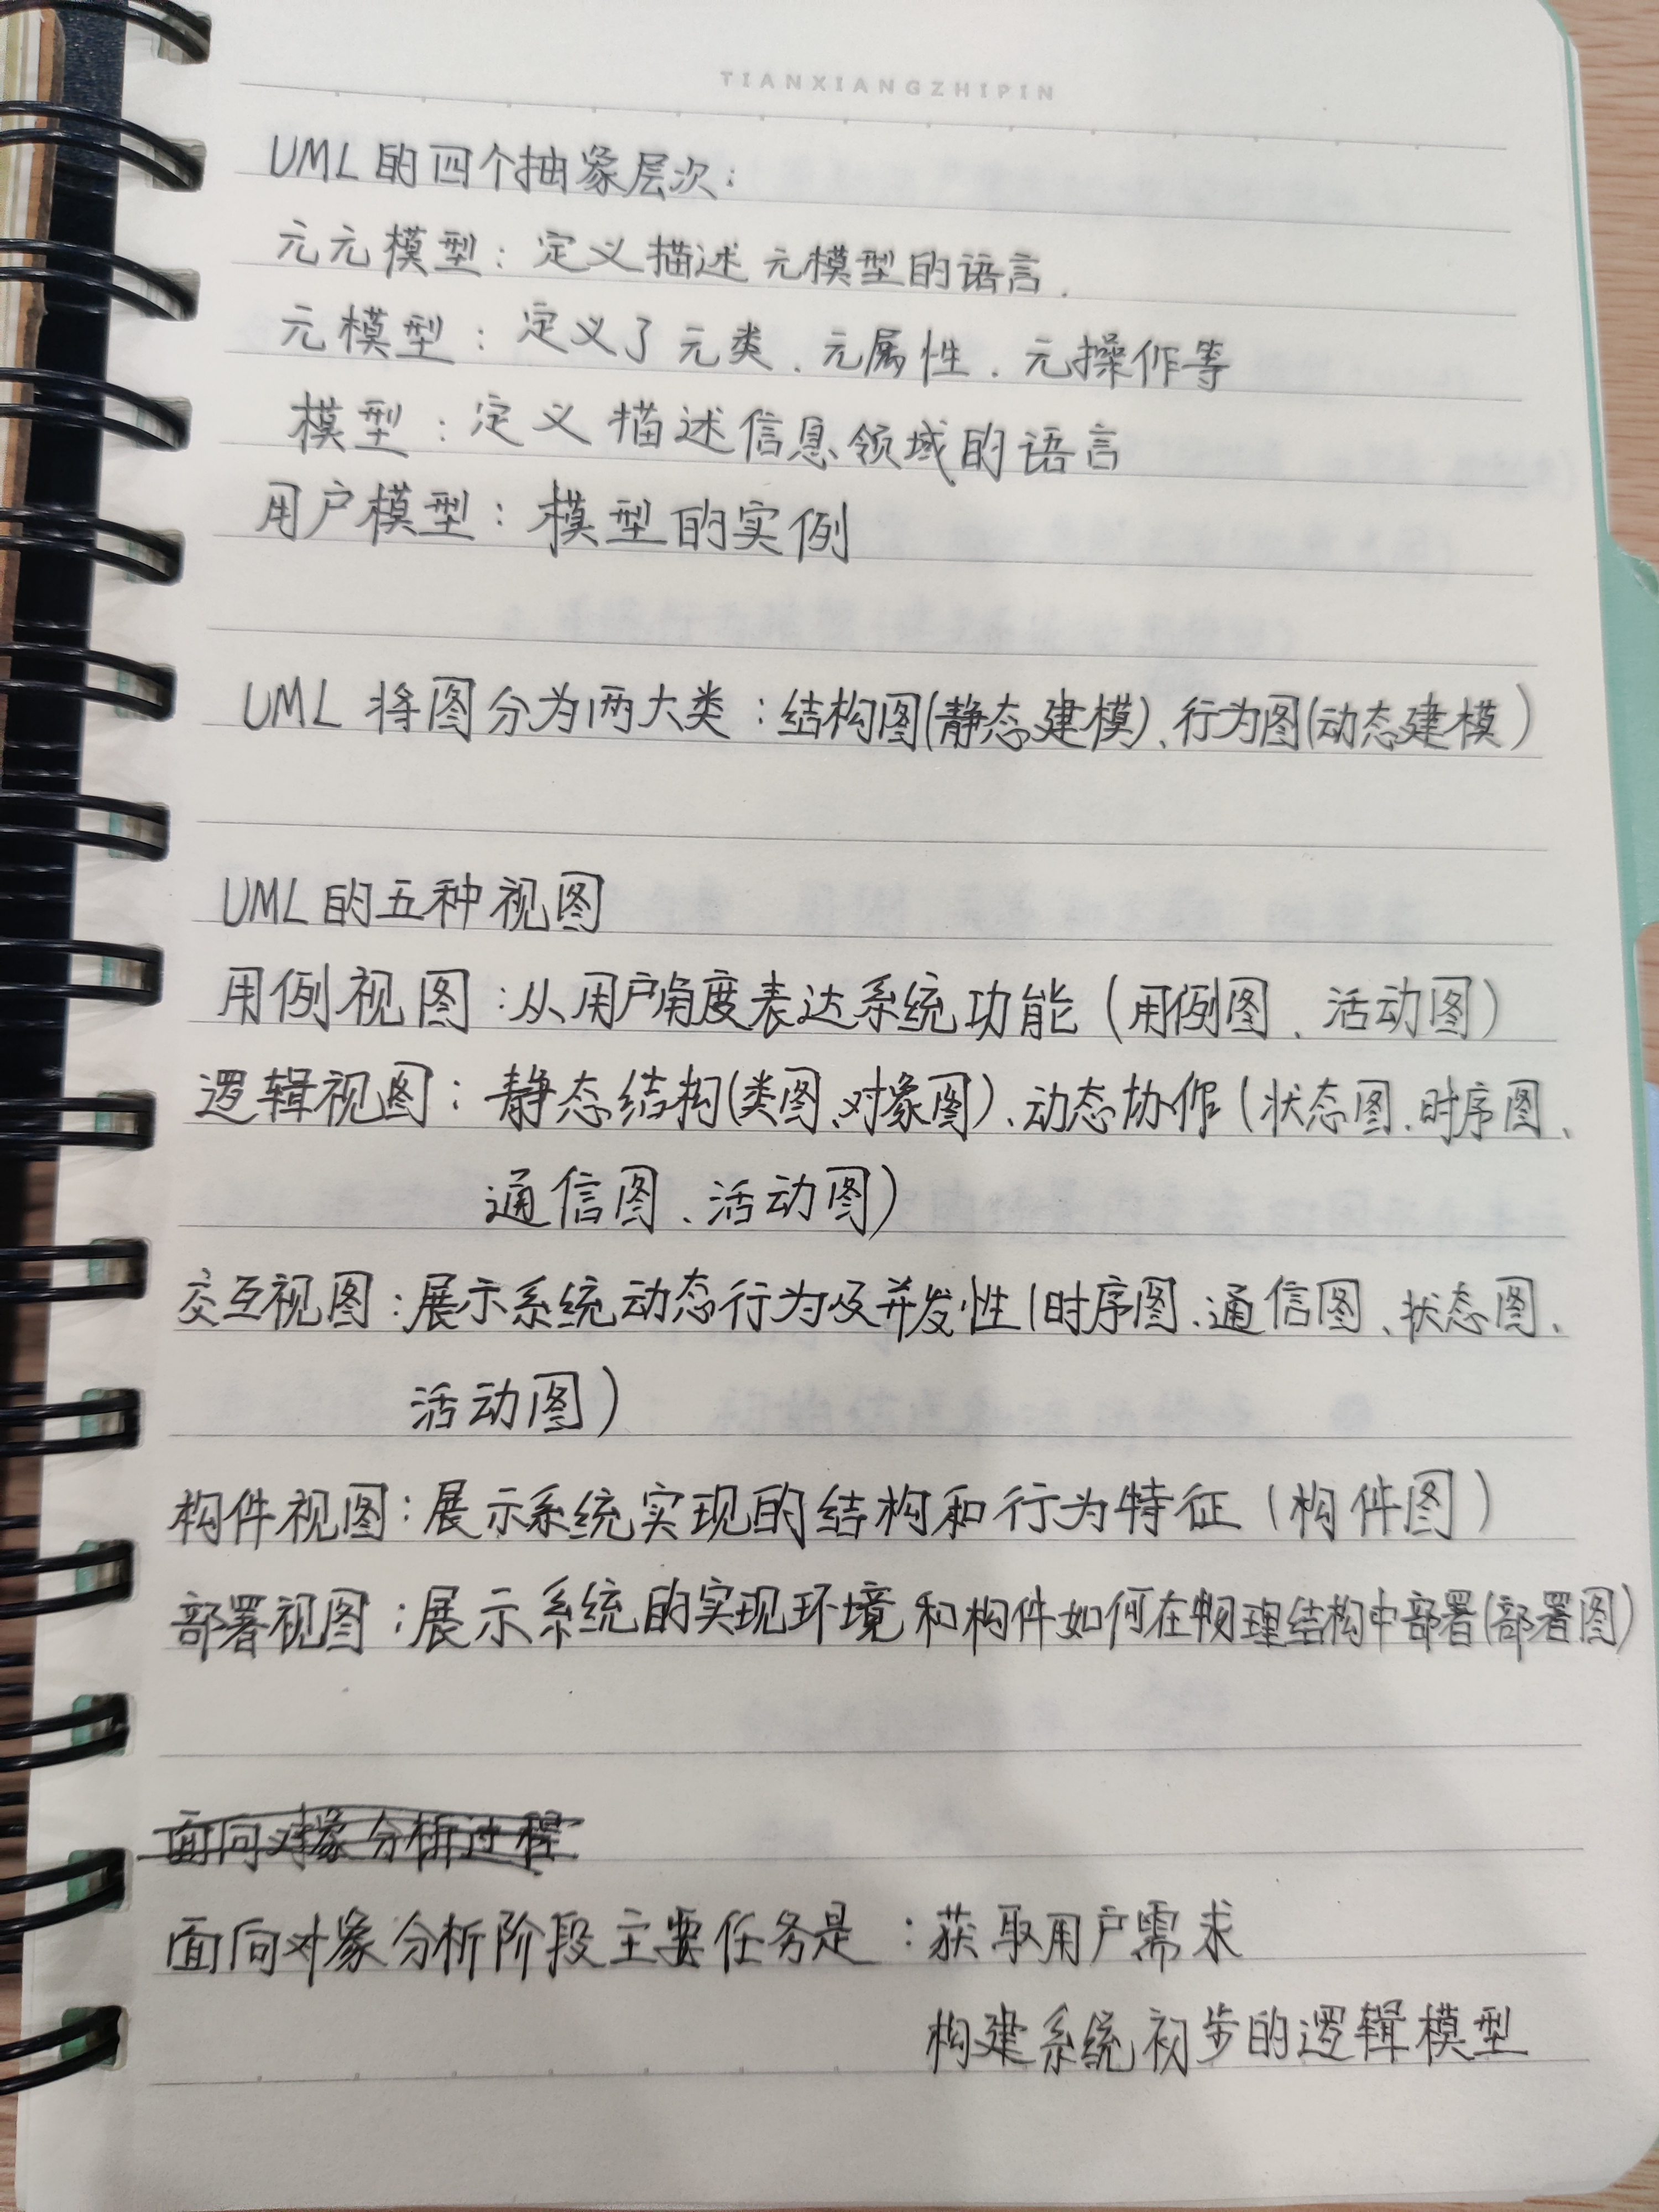 TIANXIANGZHIPIN
UML的四个抽象层次:
元元模型: 定义描述元模型的语言.
元模型: 定义了元类、元属性、元操作等
模型: 定义描述信息领域的语言
用户模型: 模型的实例
UML 将图分为两大类:结构图(静态建模)、行为图(动态建模)
UML的五种视图
用例视图:从用户角度表达系统功能(用例图、活动图)
逻辑视图: 静态结构(类图、对象图)、动态协作(状态图、时序图、
通信图、活动图)
交互视图:展示系统动态行为及并发性(时序图、通信图、状态图、
活动图)
构件视图:展示系统实现的结构和行为特征(构件图)
部署视图:展示系统的实现环境和构件如何在物理结构中部署(部署图)
面向对象分析过程
面向对象分析阶段主要任务是:获取用户需求
构建系统初步的逻辑模型